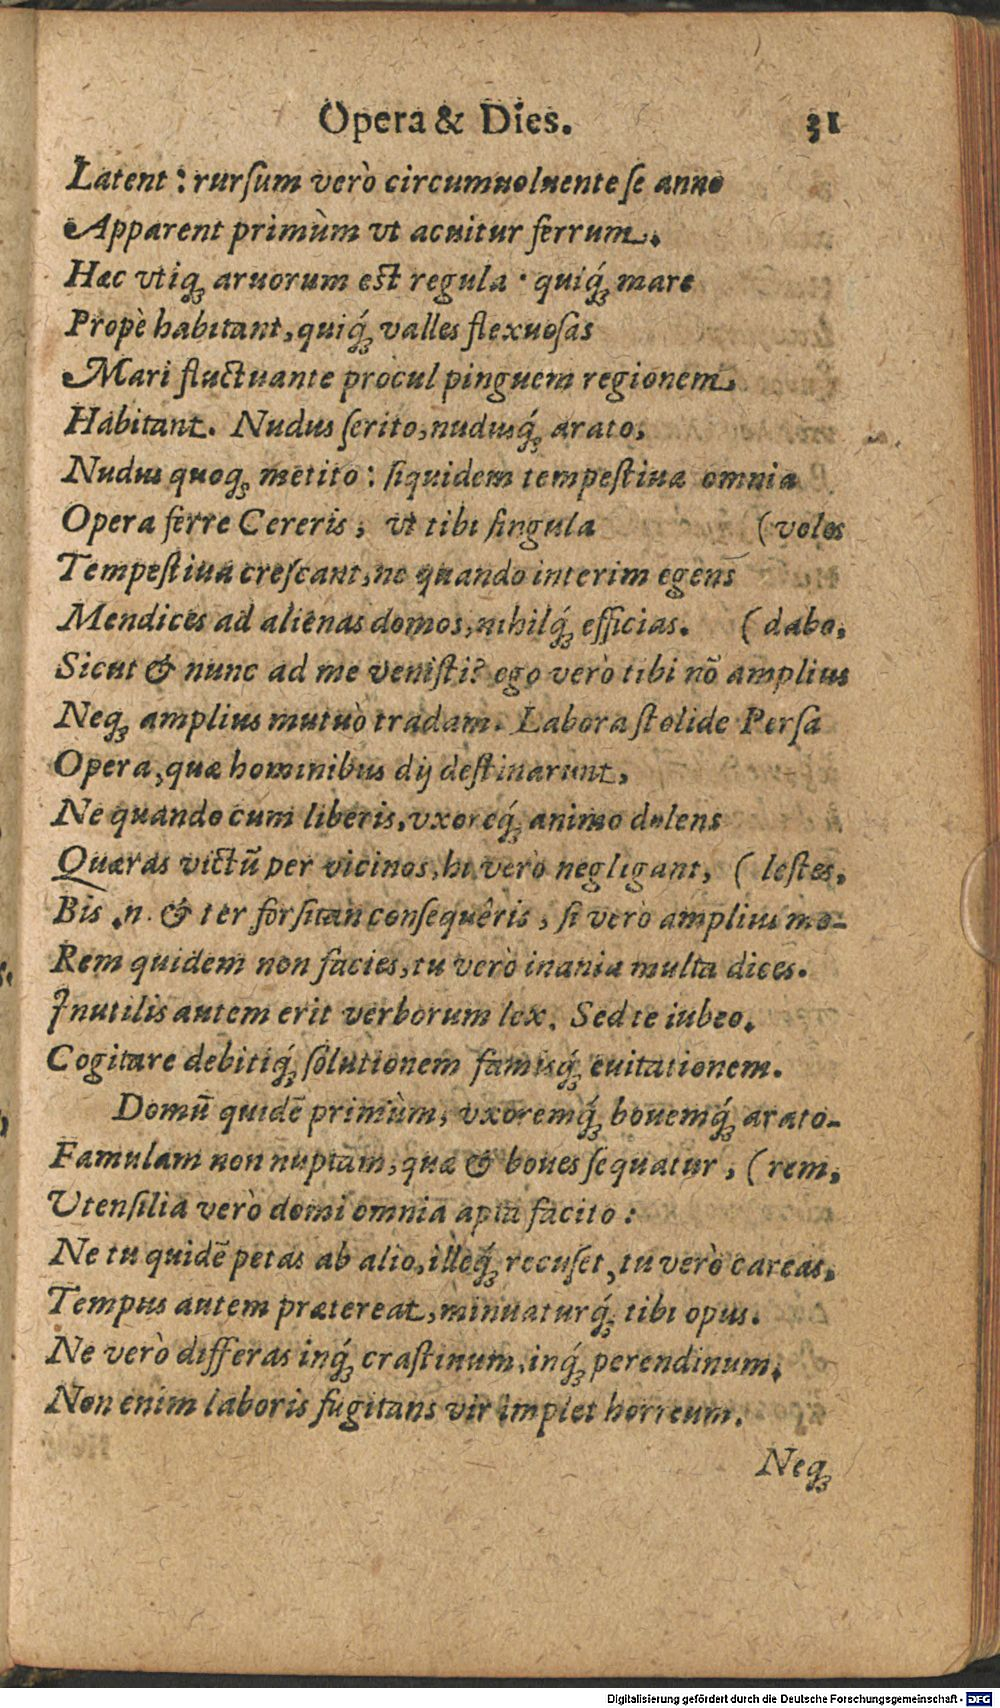 Opera & Dies. 31
Latent : rurſum verò circumuoluente ſe anno
Apparent primùm vt acuitur ferrum.
Hæc vtiq́ꝫ aruorum est regula · quiq́ꝫ mare
Propè habitant, quiq́ꝫ valles flexuoſas
Mari fluctuante procul pinguem regionem,
Habitant. Nudus ſerito, nudusq́ꝫ arato,
Nudus quoqꝫ metito : ſiquidem tempeſtiua omnia
Opera ferre Cereris, vt tibi ſingula (voles
Tempeſtiua creſcant, ne quando interim egens
Mendices ad alienas domos, nihilq́ꝫ efficias. (dabo,
Sicut & nunc ad me veniſti? ego verò tibi nõ amplius
Neqꝫ amplius mutuò tradam. Labora ſtolide Perſa
Opera, quæ hominibus dij deſtinarunt,
Ne quando cum liberis, vxoreq́ꝫ animo dolens
Quæras victũ per vicinos, hi verò negligant, (leſtes,
Bis .n. & ter forſitan conſequêris, ſi verò amplius mo-
Rem quidem non facies, tu verò inania multa dices.
Inutilis autem erit verborum lex. Sed te iubeo,
Cogitare debitiq́ꝫ ſolutionem famisq́ꝫ euitationem.
Domũ quidẽ primùm, vxoremq́ꝫ bouemq́ꝫ arato-
Famulam non nuptam, quæ & boues ſequatur, (rem,
Utenſilia verò domi omnia apta facito :
Ne tu quidẽ petas ab alio, illeq́ꝫ recuſet, tu verò careas,
Tempus autem prætereat, minuaturq́ꝫ tibi opus.
Ne verò differas inq́ꝫ craſtinum, inq́ꝫ perendinum,
Non enim laboris fugitans vir implet horreum.
Neqꝫ
Digitalisierung gefördert durch die Deutsche Forschungsgemeinschaft - DFG